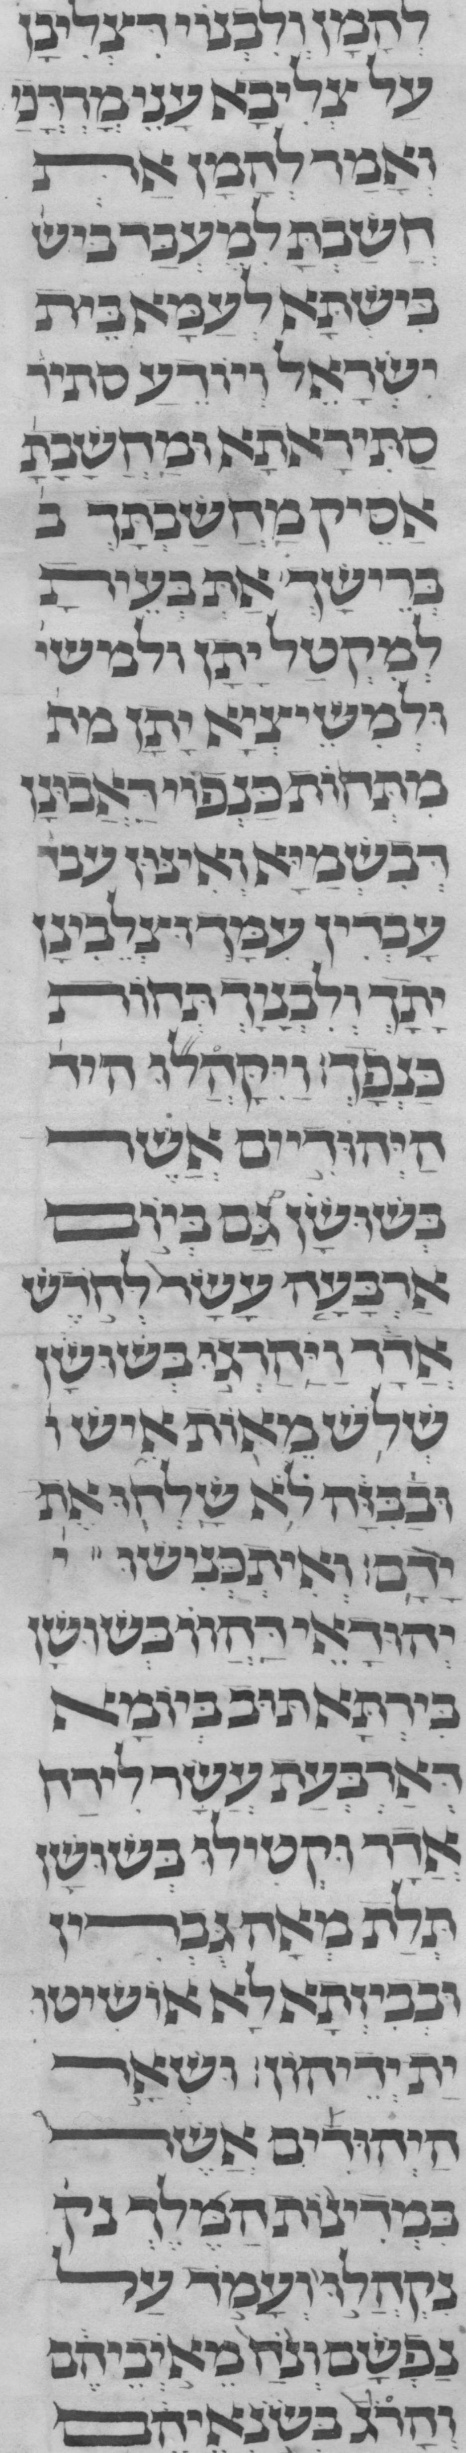 לְהָמָן וְלִבְנוֹי דִּצְלִיבָן
עַל צְלִיבָא עָנֵי מָרְדְּכַי
וְאָמַר לְהָמָן אַתְּ
חֲשַׁבְתָּ לְמֶעְבַּד בִּישׁ
בִּישְׁתָּא לְעַמָּא בֵּית
יִשְׂרָאֵל וְיוֹדֵעַ סתיר
סַתִּירָאתָא וּמַחְשָׁבָתָ
אַסֵּיק מַחֲשַׁבְתָּךְ ב
בְּרֵישָׁךְ אַתְּ בְּעֵיתָ
לְמִקְטַל יָתָן ולמשי
וּלְמִשֵׁיצְיָא יָתָן מת
מִתְּחוֹת כַּנְפוֹי דַּאֲבוּנָן
דְּבִשְׁמַיָּא וְאִינוּן עבד
עָבְדִין עִמָּךְ וּצְלֵבִינָן
יָתָךְ וְלִבְנָיךְ תְּחוֹת
כַּנְפָּךְ׃ וַיִּקָּהֲלוּ היד
הַיְּהוּדִיִּים אֲשֶׁר
בְּשׁוּשָׁן גַּם בְּיוֹם
אַרְבָּעָה עָשָׂר לְחֹדֶשׁ
אֲדָר וַיַּהַרְגוּ בְשׁוּשָׁן
שְׁלֹשׁ מֵאוֹת אִישׁ ו
וּבַבִּזָּה לֹא שָׁלְחוּ אֶת
יָדָם׃ וְאִיתְכְּנִישׁוּ י
יְהוּדָאֵי דַּהֲווֹ בְּשׁוּשָׁן
בִּירְתָּא תּוּב בְּיוֹמָא
דְּאַרְבְּעַת עֲשָׂר לִירַח
אֲדָר וּקְטִילוּ בְּשׁוּשַׁן
תְּלַת מְאָה גֻבְרִין
וּבְבִיזְתָא לָא אוֹשִׁיטוּ
יַת יְדֵיהוֹן׃ וּשְׁאָר
הַיְּהוּדִים אֲשֶׁר
בִּמְדִינוֹת הַמֶּלֶךְ נק
נִקְהֲלוּ וְעָמֹד עַל
נַפְשָׁם וְנֹחַ מֵאֹיְבֵיהֶם
וְהָרֹג בְּשֹׂנְאֵיהֶם